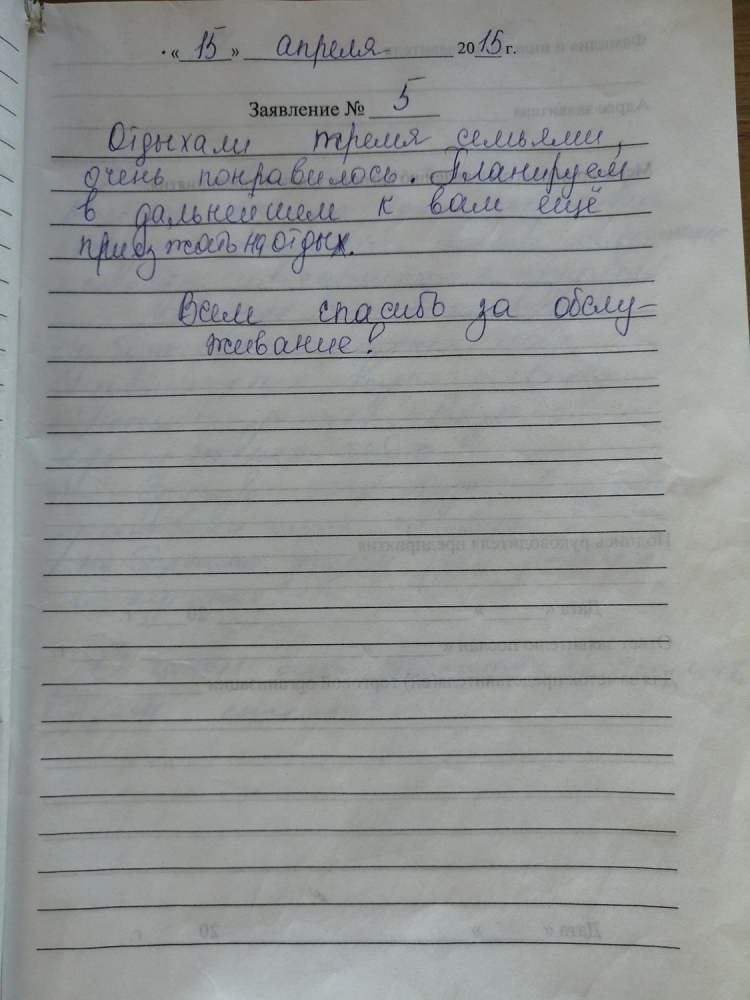 «15» апреля 2015 г.
Заявление № 5
Отдыхали тремя семьями,
очень понравилось. Планируем
в дальнейшем к вам ещё
приезжать на отдых.
Всем спасибо за обслу-
живание!